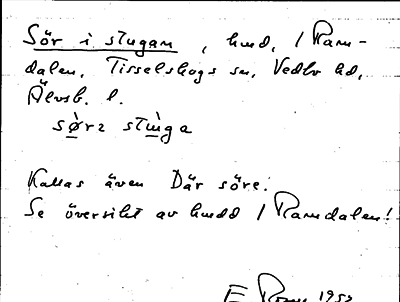 Sör i stugan, hmd, / Ramn-
dalen, Tisselskogs sn, Vedbo hd,
Älvsb. l.
sø̀rɪ stùnga
Kallas även Där söre.
Se översikt av hmdd / Ramndalen!
E 1952